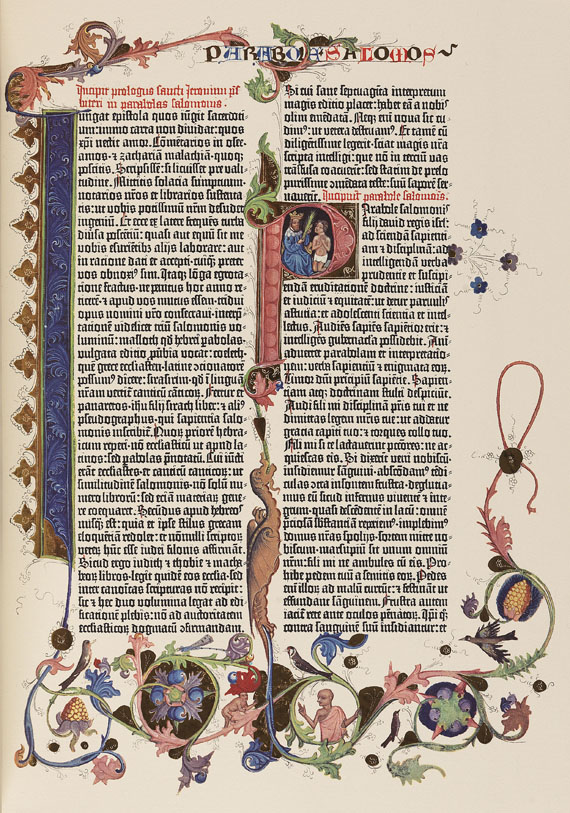 PARABOLE SALOMOIS
Incipit prologus sancti Jeronimi ps̄
biteri in parabolas salomonis.
Iungat epistola quos iūgit sacerdoti-
um: immo carta non dividat: quos
xp̄i nectit amor. Cōmētarios in osee-
amos ⁊ zachariā malachiā quoqꝫ
poscitis. Scripsissē: si licuisset pre vali-
tudine. Mittitis solacia sumptuum·
notarios nr̄os et librarios sustenta-
tis: ut vobis potissimū nr̄m desudet
ingeniū. Et ecce ex latere frequēs turba
diūsa poscētiū: quasi aut equū sit me
vobis esurientibꝫ alijs laborare: aut
in ratione dati et accepti· cuiqꝫ preter
vos obnoxiꝰ sim. Itaqꝫ lōga egrota-
tione fractus· ne penitus hoc anno re-
ticerē· ⁊ apud vos mutus essem· tridui
opus nomini vr̄o consecravi· interp̄-
tationē videlicet triū salomonis vo-
luminū: masloth qd̄ hebrei pabolas·
vulgata editio ꝓūbia vocat: coeleth·
quē grece ecclesiastē· latine ꝯcionatorē
possumꝰ dicere: sirasirim· qd̄ ī linguā
nr̄am vertiť canticū canticoꝝ. Fertur et
panaretos· ihū filij sirach liber: ⁊ aliꝰ
pseudographus· qui sapientia salo-
monis inscribiť. Quoꝝ priorē hebra-
icum repperi· nō ecclesiasticū ut apud la-
tinos: sed pabolas p̄notatū. Cui iūcti
erant ecclesiastes· et canticū canticoꝝ: ut
similitudinē salomonis· nō solū nu-
mero librorū: sed etiā materiaꝝ gene-
re coequaret. Secūdus apud hebreos
nusqꝫ est: quia et ipse stilus grecam
eloquētiā redolet: et nōnulli scriptoꝝ
veterū hūc esse iudei filonis affirmāt.
Sicud ergo iudith ⁊ thobie ⁊ macha-
beoꝝ libros· legit quidē eos ecclesia· sed
inter canoicas scripturas nō recipit:
sic ⁊ hec duo volumina legat ad edi-
ficationē plebis: nō ad auctoritatem
ecclesiasticoꝝ dogmatū ꝯfirmandam.
Si cui sane septuagīta interpretum
magis editio placet: habet eā a nobis
olim emēdatā. Neqꝫ enī nova sic cu-
dimꝰ: ut vetera destruamꝰ. Et tamē cū
diligētissime legerit· sciat magis nr̄a
scripta intelligi: que nō in terciū vas
trāsfusa coacuerīt: sed statim de prelo
purissime ꝯmēdata teste: suū saporē ser-
vaverīt. Incipiūt parabole salomois.
Parabole salomonis
filij david regis isr̄l:
ad sciendā sapienti-
am ⁊ disciplinā: ad
intelligendā verba
prudentie et suscipi-
endā eruditationē doctrine: iusticiā
et iudiciū ⁊ equitatē: ut detur parvulis
astutia: et adolescenti sciencia et intel-
lectus. Audiēs sapiēs sapiētior erit: ⁊
intelligēs gubernacla possidebit. Ani-
advertet parabolam et interpretatio-
nem: verba sapientiū ⁊ enigmata eoꝝ.
Timor dn̄i principiū sapiētie. Sapien-
tiam atqꝫ doctrinam stulti despiciūt.
Audi fili mi disciplinā pr̄is tui et ne
dimittas legem mr̄is tue: ut addatur
gracia capiti tuo: ⁊ torques collo tuo.
Fili mi si te lactaverint pctōres: ne ac-
quiescas eis. Si dixerīt veni nobiscū·
insidiemur sāguini· abscōdamꝰ tēdi-
culas ꝯtra insontem frustra· deglutia-
mus eū sicud infernus viventē ⁊ inte-
grum· quasi descēdentē in lacū: omnē
p̄ciosā sbstantiā repperiemꝰ· implebimꝰ
domus nr̄as spolijs· sortem mitte no-
biscum· marsupiū sit unum omnium
nr̄m: fili mi ne ambules cū eis. Pro-
hibe pedem tuū a semitis eoꝝ. Pedes
enī illoꝝ ad malū currūt: ⁊ festināt ut
effundant sanguinem. Frustra autem
iaciť rete ante oculos pēnatoꝝ. Ipi qꝫ
contra sanguinē suū insidiantur: et